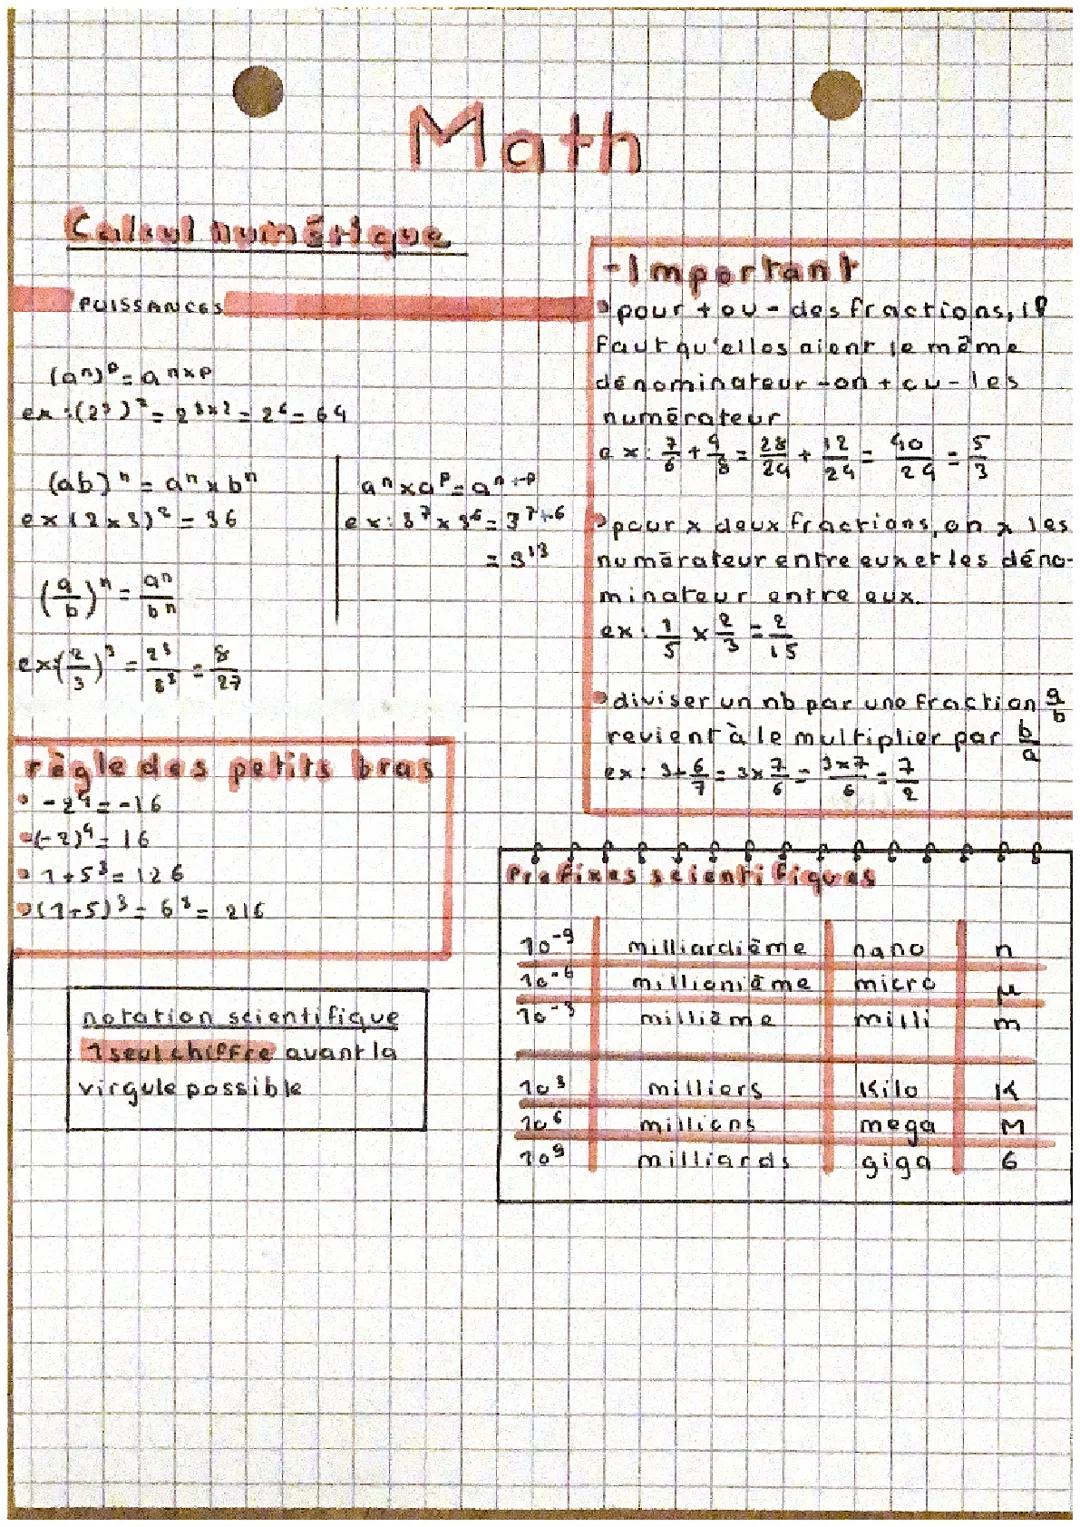 Math
Calcul numérique
PUISSANCES
(aⁿ)ᵖ = aⁿˣᵖ
ex : (2³)² = 2³ˣ² = 2⁶ = 64
(ab)ⁿ = aⁿ x bⁿ
ex (2x3)² = 36
(a/b)ⁿ = aⁿ/bⁿ
ex (2/3)³ = 2³/3³ = 8/27
aⁿ x aᵖ = aⁿ⁺ᵖ
ex : 3⁷ x 3⁶ = 3⁷⁺⁶
= 3¹³
règle des petits bras
-2⁴ = -16
(-2)⁴ = 16
1+5³ = 126
(1+5)³ = 6³ = 216
notation scientifique
1 seul chiffre avant la
virgule possible
- Important
pour + ou - des fractions, il
faut qu'elles aient le même
dénominateur → on + ou - les
numérateur
ex : 7/6 + 4/8 = 28/24 + 12/24 = 40/24 = 5/3
pour x deux fractions, on x les
numérateur entre eux et les déno-
minateur entre eux.
ex : 1/5 x 2/3 = 2/15
diviser un nb par une fraction a/b
revient à le multiplier par b/a
ex : 3÷6/7 = 3x7/6 = 3x7/6 = 7/2
Préfixes scientifiques
10⁻⁹ milliardième nano n
10⁻⁶ millionième micro μ
10⁻³ millième milli m
10³ milliers Kilo K
10⁶ millions mega M
10⁹ milliards giga G